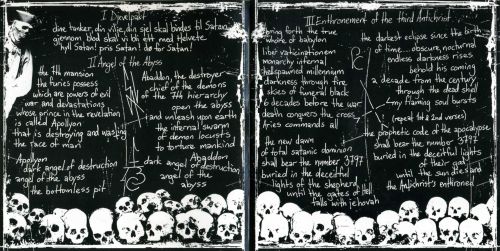 I Djevelpakt
dine tanker, din vilje, din sjel skal bindes til Satan
gjennom blod skal vi bli ett med Helvete
hyll Satan! pris Satan! dø for Satan!
II Angel of the Abyss
the 7th mansion
the furies possess
which are powers of evil
war and devastations
whose prince in the revelation
is called Apollyon
that is destroying and wasting
the race of man
Apollyon
dark angel of destruction
angel of the abyss
the bottomless pit
Abaddon, the destroyer
chief of the demons
of the 7th hierarchy
open the abyss
and unleash upon earth
the internal swarm
of demon locusts
to torture mankind
Abaddon
dark angel of destruction
angel of the
abyss
III Enthronement of the third Antichrist
bring forth the true
whore of babylon
liber vaticinationem
monarchy internal
hellspawned millennium
darkness through fire
skies of funeral black
6 decades before the war
death conquers the cross
Aries commands all
the new dawn
of total satanic dominion
shall bear the number 3797
buried in the deceitful
lights of the shepherd
until the gates of Hell
falls with jehovah
the darkest eclipse since the birth
of time... obscure, nocturnal
endless darkness rises
behold his coming
a decade from the century
through the dead shell
my flaming soul bursts
(repeat 1st & 2nd verses)
the prophetic code of the apocalypse
shall bear the number 3797
buried in the deceitful lights
of their god
until the sun dies and
the Antichrist's enthroned